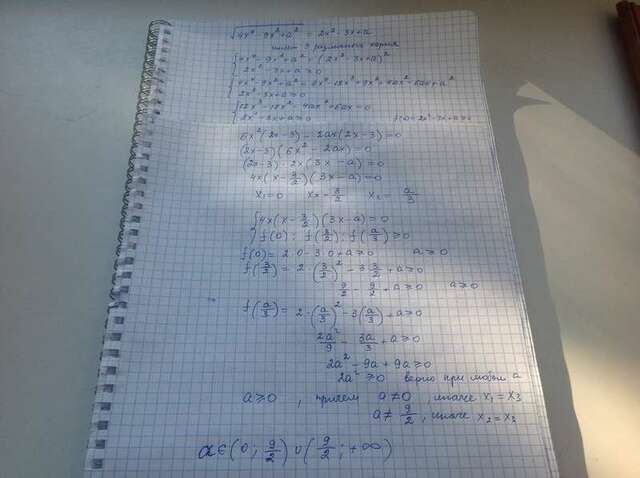 √(4x⁴ - 9x² + a²) = 2x² - 3x + a
имеет 3 различных корня
{ 4x⁴ - 9x² + a² = (2x² - 3x + a)²
2x² - 3x + a ≥ 0
{ 4x⁴ - 9x² + a² = 4x⁴ - 12x³ + 9x² + 4ax² - 6ax + a²
2x² - 3x + a ≥ 0
{ 12x³ - 18x² - 4ax² + 6ax = 0
2x² - 3x + a ≥ 0
6x²(2x - 3) - 2ax(2x - 3) = 0
(2x - 3)(6x² - 2ax) = 0
(2x - 3) · 2x(3x - a) = 0
4x(x - 3/2)(3x - a) = 0
x₁ = 0 x₂ = 3/2 x₃ = a/3
{ 4x(x - 3/2)(3x - a) = 0
f(0); f(3/2); f(a/3) ≥ 0
f(0) = 2·0 - 3·0 + a ≥ 0 a ≥ 0
f(3/2) = 2·(3/2)² - 3·3/2 + a ≥ 0
9/2 - 9/2 + a ≥ 0 a ≥ 0
f(a/3) = 2·(a/3)² - 3(a/3) + a ≥ 0
2a²/9 - 3a/3 + a ≥ 0
2a² - 9a + 9a ≥ 0
2a² ≥ 0 верно при любом a
a ≥ 0, причем a ≠ 0, иначе x₁ = x₃
a ≠ 9/2, иначе x₂ = x₃
a ∈ (0; 9/2) ∪ (9/2; +∞)